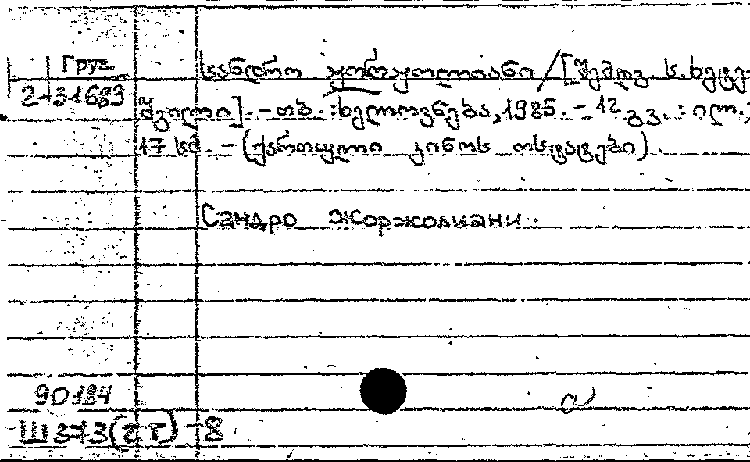 Груз. სანდრო ჟორჟოლიანი / [შემდგ. ს. ხეცუ-
2-31689 შვილი]. - თბ. : ხელოვნება, 1985. - 12 გვ. : ილ.,
17 სმ. - (ქართული კინოს ოსტატები).
Сандро Жоржолиани.
90184
Ш373(2Г) -8